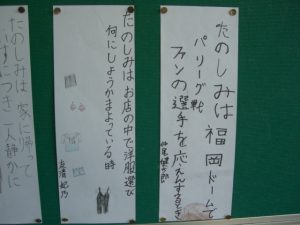 たのしみは 福岡ドームで
パリーグ戦
ファンの選手を応えんするとき
たのしみはお店の中で洋服選び
何にしようかまよっている時
たのしみは 家に帰って
一人静かに